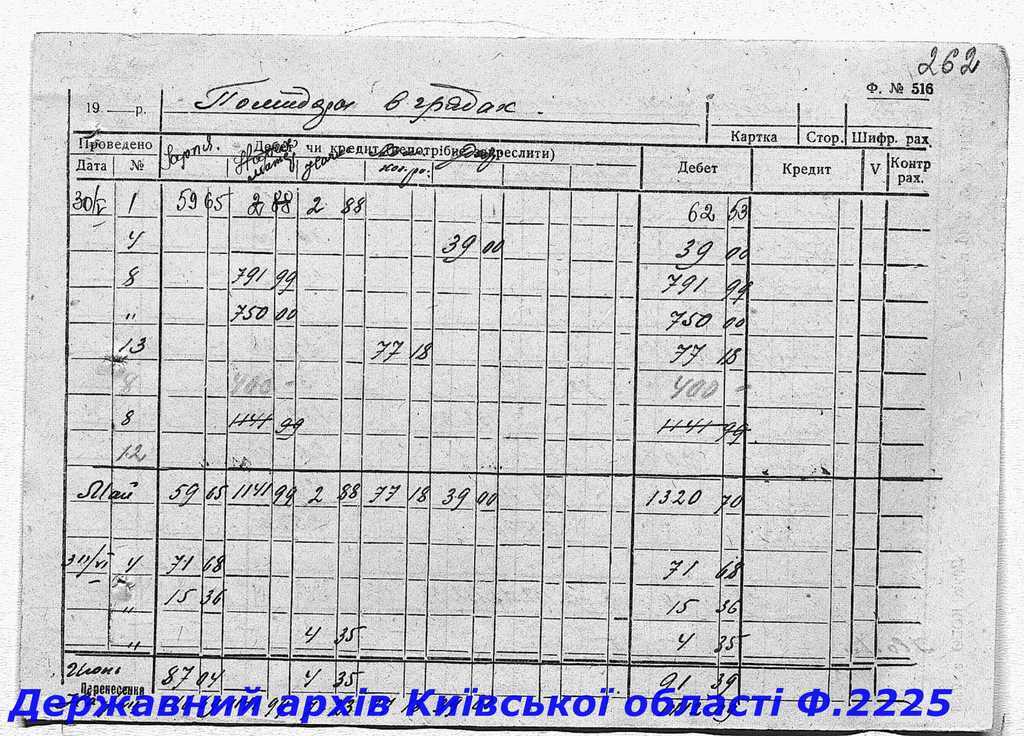 262
Ф. № 516
19 р. Помидоры в грядах
Картка Стор. Шифр. рах
Проведено Дебет чи кредит (непотрібне закреслити)
Дата № Зарпл. Дебет Кредит V Контр рах.
30/V 1 59 65 2 88 2 88 62 53
4 39 00 39 00
8 791 99 791 99
" 750 00 750 00
13 77 18 77 18
8 400 - 400 -
8 1141 99 1141 99
12
Май 59 65 1141 99 2 88 77 18 39 00 1320 70
4 71 68 71 68
" 15 36 15 36
" 4 35 4 35
Июнь 87 04 4 35 91 39
Перенесення
Державний архів Київської області Ф.2225